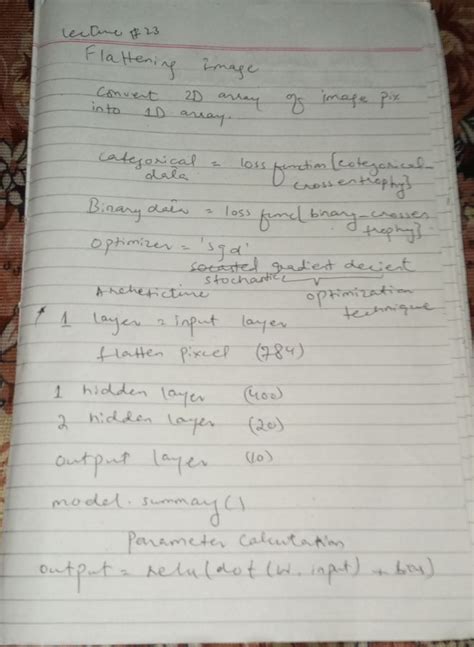 Lecture #23
Flattening image
Convert 2D array of image pix
into 1D array.
Categorical = loss function [categorical_
data crossentrophy}
Binary data = loss func[binary_crossen
trophy}
Optimizer = 'sgd'
gradient decient
stochastic
Archeticture optimization
technique
* 1 layer = input layer
flatten pixcel (784)
1 hidden layer (400)
2 hidden layer (20)
output layer (10)
model.summary()
Parameter Calculation
output = relu(dot(w.input) + bias)